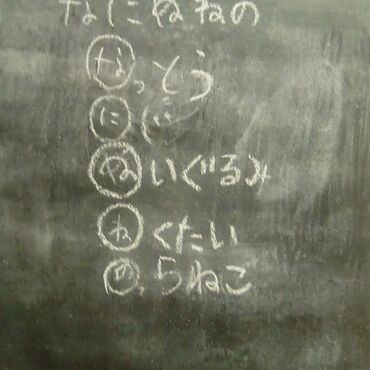 なにぬねの
なっとう
にじ
ぬいぐるみ
ねくたい
のらねこ